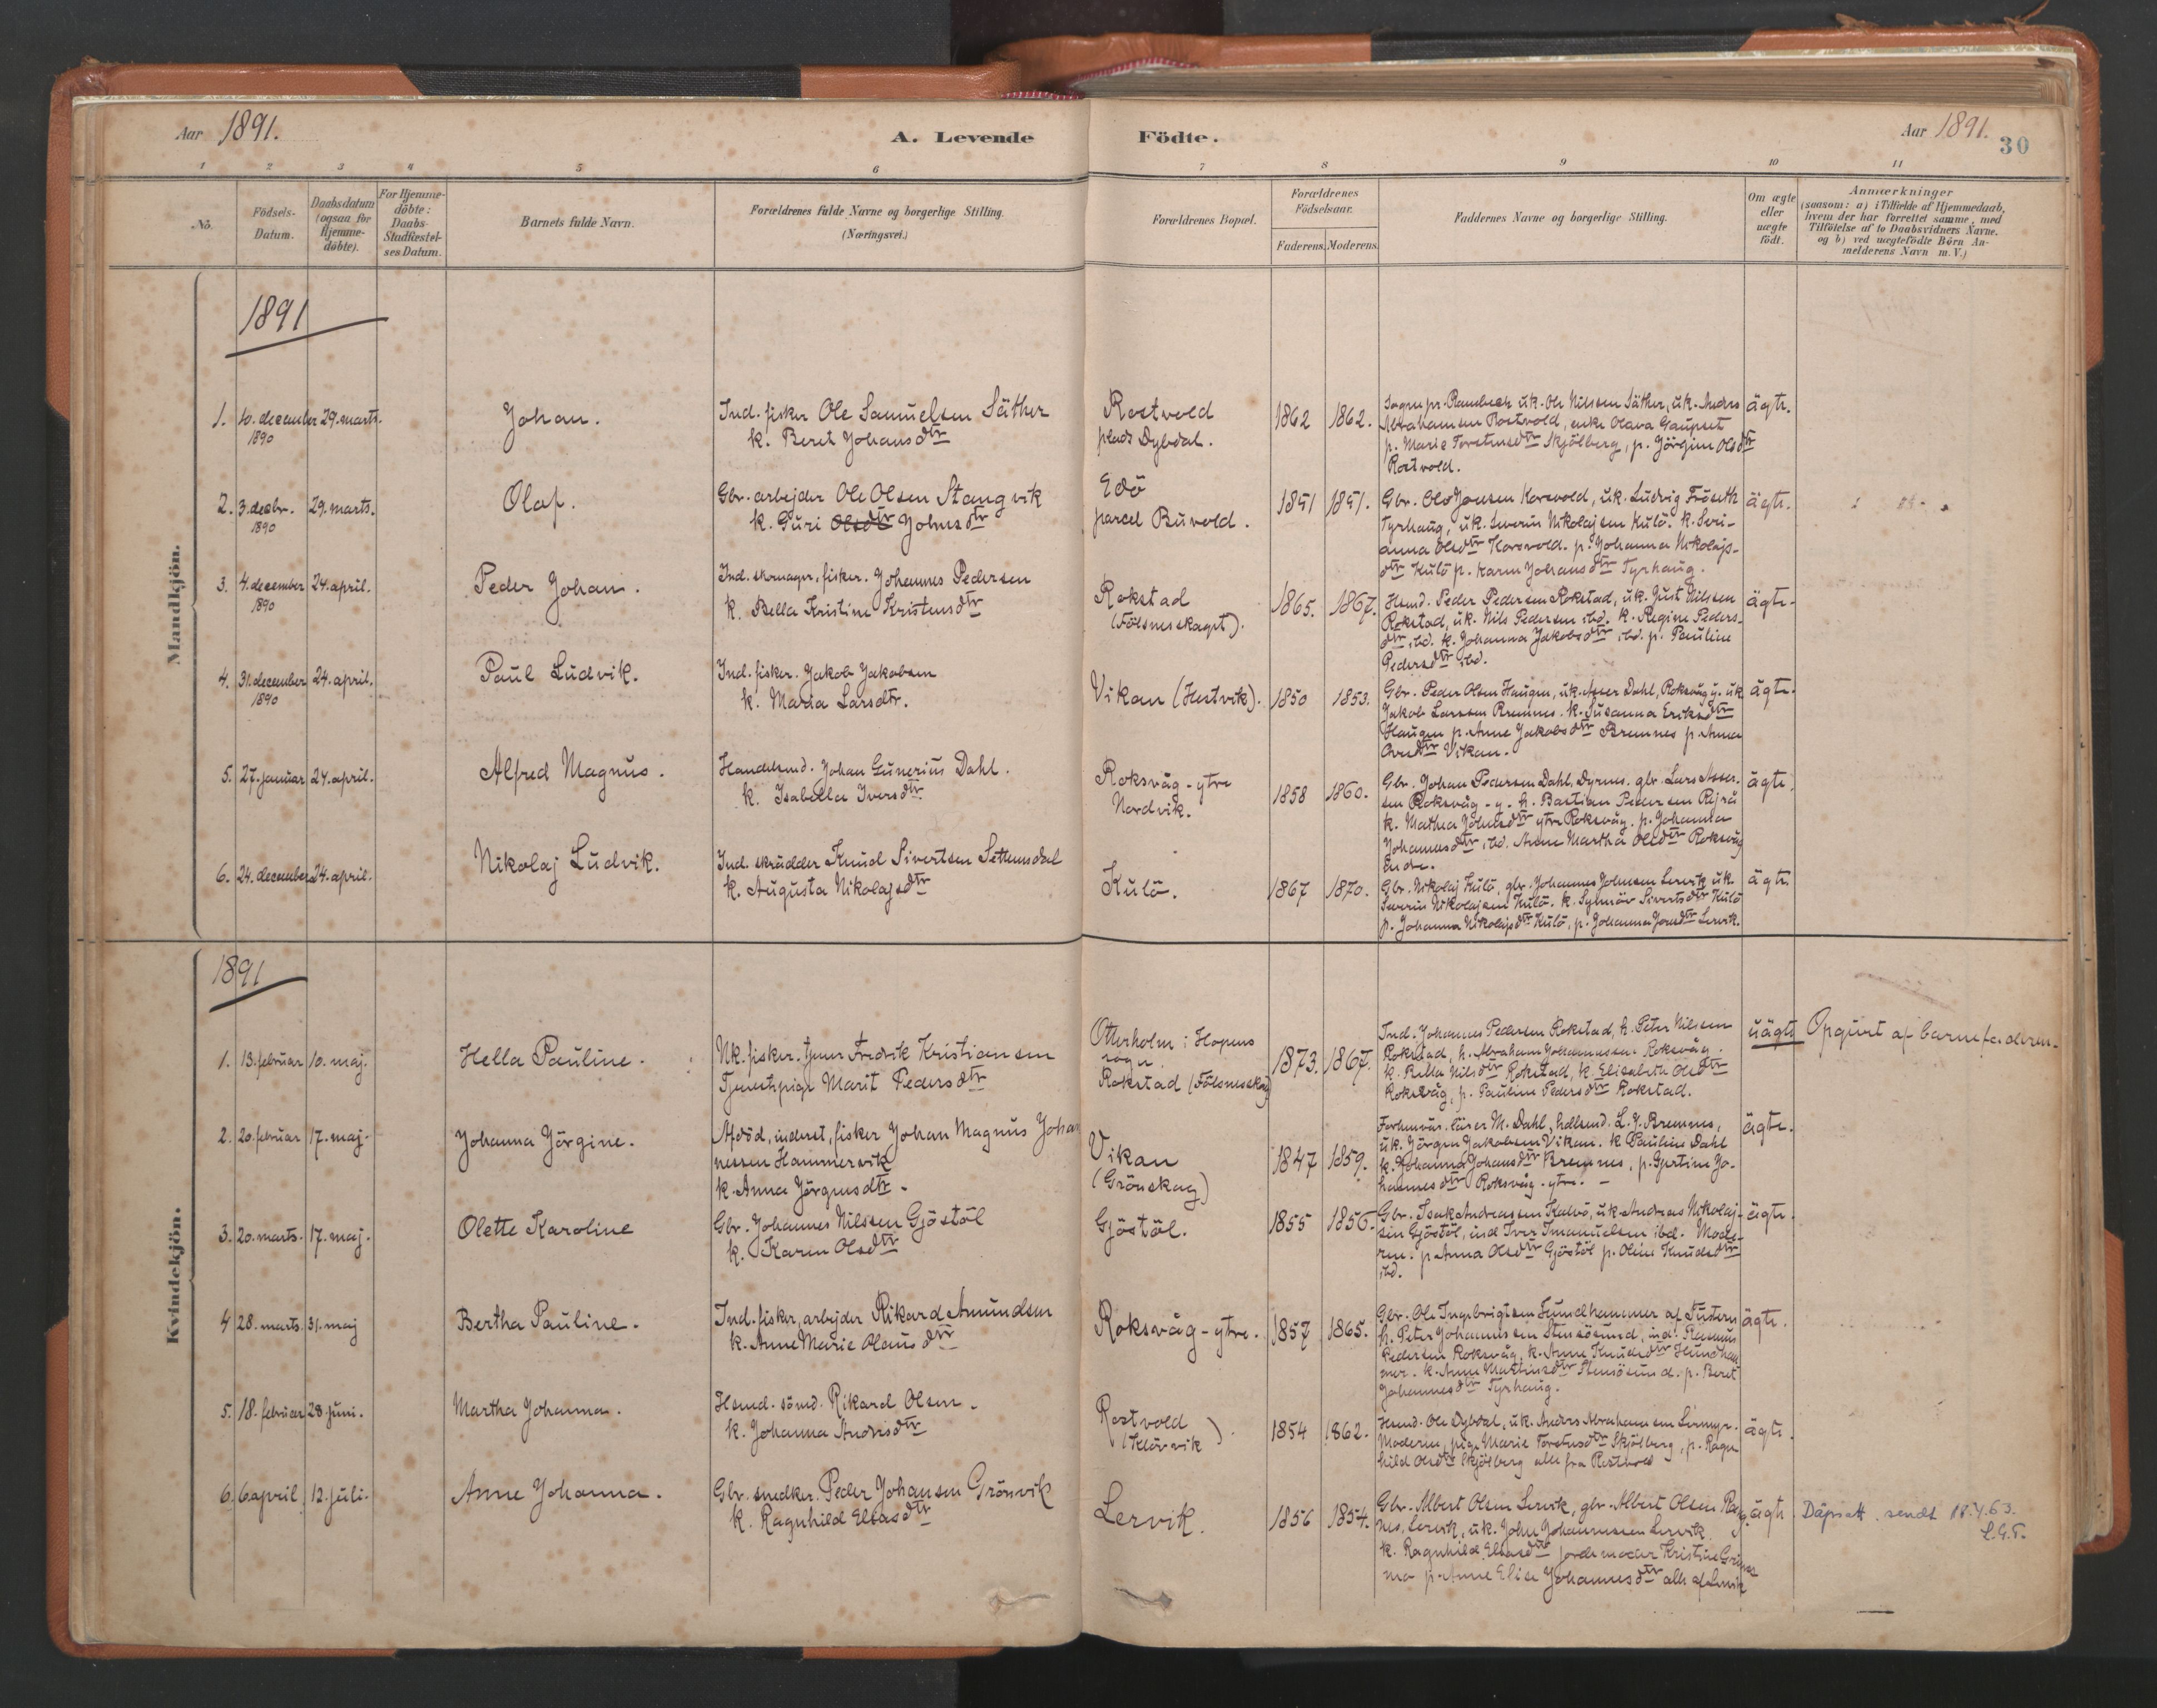 Aar 1891.
A. Levende Födte.
Aar 1891.
30
1 2 3 4 5 6 7 8 9 10 11
No.
Födsels-Datum.
Daabsdatum (ogsaa for Hjemme-döbte).
For Hjemme-döbte: Daabs-Stadfæstel-ses Datum.
Barnets fulde Navn.
Forældrenes fulde Navne og borgerlige Stilling. (Næringsvei.)
Forældrenes Bopæl.
Forældrenes Födselsaar.
Faderens. Moderens.
Faddernes Navne og borgerlige Stilling.
Om ægte eller uægte födt.
Anmærkninger
(saasom: a) i Tilfælde af Hjemmedaab,
hvem der har forrettet samme, med
Tilföielse af to Daabsvidners Navne.
og b) ved uægtefödte Börn An-
melderens Navn m.V.)
Mandkjön.
1891
1. 10. december 1890 29. marts. Johan.
Ind. fisker Ole Samuelsen Säther
k. Beret Johansdtr
Rostvold
plads Dybdal.
1862 1862.
Ole Nilssen Säther, uk. Anders
Abrahamsen Rostvold, enke Olava Gaupset
p. Marie Torstensdtr Skjölberg, p. Jörgine Olsdtr
Rostvold.
ägte.
2. 3. decbr. 1890 29. marts. Olaf.
Gbr. arbejder Ole Olsen Stangvik
k. Guri Olsdtr Johnsdtr
Edö
parcel Buvold.
1851 1851.
Gbr. Ole Jonsen Korsvold, uk. Ludvig Fröseth
Tyrhaug, uk. Severin Nikolajsen Kulö. k. Seri-
anna Olsdtr Korsvold. p. Johanna Nikolajs-
dtr Kulö p. Karen Johansdtr Tyrhaug.
ägte.
3. 4. december 1890 24. april. Peder Johan.
Ind. skomager, fisker. Johannes Pedersen
k. Bella Kristine Kristensdtr
Rokstad
(Fölsneskaget).
1865. 1867.
Hsmd. Peder Pedersen Rokstad, uk. Just Nilssen
Rokstad, uk. Nils Pedersen ibd. k. Regine Peders-
dtr ibd. k. Johanna Jakobsdtr ibd. p. Pauline
Pedersdtr ibd.
ägte.
4. 31. december 1890 24. april. Paul Ludvik.
Ind. fisker. Jakob Jakobsen
k. Maria Larsdtr.
Vikan (Hestvik).
1850 1853.
Gbr. Peder Olsen Haugen, uk. Asser Dahl, Roksvåg y. uk
Jakob Larssen Bremnes. k. Susanna Eriksdtr
Haugen p. Anne Jakobsdtr Bremnes p. Anna
Vikan.
ägte.
5. 27. januar 24. april. Alfred Magnus.
Handelsmd. Johan Gunerius Dahl.
k. Isabella Iversdtr
Roksvåg-ytre
Nordvik.
1858 1860.
Gbr. Johan Pedersen Dahl, Dyrnes. gbr. Lars Asser-
sen Roksvåg-y. h. Bastian Pedersen
k. Mathea Johnsdtr ytre Roksvåg. p. Johanna
Johannesdtr ibd. Anne Martha Olsdtr Roksvåg
indre.
ägte.
6. 24. december 24. april. Nikolaj Ludvik.
Ind. skrädder Knud Sivertsen Settemsdal
k. Augusta Nikolajsdtr
Kulö.
1867 1870.
Gbr. Nikolaj Kulö, gbr. Johannes Johnsen Lervik uk.
Severin Nikolajsen Kulö. k. Synnöv Sivertsdtr Kulö
p. Johanna Nikolajsdtr Kulö, p. Johanna Jonsdtr Lervik.
ägte.
Kvindekjön.
1891
1. 13. februar 10. maj. Hella Pauline.
Uk. fisker. Fredrik Kristiansen
Tjenestpige Marit Pedersdtr
Otterholm i Hopens
sogn.
Rokstad (Fölsneskag)
1873. 1867.
Ind. Johannes Pedersen Rokstad, h. Peter Nilssen
Rokstad, h. Abraham Johannessen Roksvåg.
k. Bella Nilsdtr Rokstad, k. Elisabeth Olsdtr
Roksvåg, p. Pauline Pedersdtr Rokstad.
uägte
Opgivet af barnefaderen.
2. 20. februar 17. maj. Johanna Jörgine.
Afdöd, inderst, fisker Johan Magnus Johan
nessen Hammervik
k. Anna Jörgensdtr.
Vikan
(Grönskag)
1847 1859.
Forhenvär. lärer M. Dahl, L. J. Bremnes,
uk. Jörgen Jakobsen Vikan. k. Pauline Dahl
k. Johanna Johansdtr Bremnes, p. Gjertine Jo-
hannesdtr Roksvåg-ytre.
ägte.
3. 20. marts. 17. maj. Olette Karoline
Gbr. Johannes Nilssen Gjöstöl
k. Karen Olsdtr
Gjöstöl.
1855 1856.
Gbr. Isak Andreassen Kalvö, uk. Andreas Nikolaj-
sen Gjöstöl, ind Iver Imanuelsen ibd. Mode-
ren. p. Anna Olsdtr Gjöstöl p. Oline Knudsdtr
ibd.
ägte.
4 28. marts. 31. maj Bertha Pauline.
Ind. fisker, arbejder Rikard Amundsen
k. Anne Marie Olausdtr
Roksvåg-ytre.
1857 1865.
Gbr. Ole Ingebrigtsen Hundhammer af Tustern
h. Peter Johannessen Stensösund, ind. Rasmus
Pedersen Roksvåg, k. Anne Knudsdtr Hundham
mer. k. Anne Martinsdtr Stensösund. p. Beret
Johannesdtr Tyrhaug.
ägte.
5. 18. februar 28. juni. Martha Johanna.
Hsmd. sömd. Rikard Olsen.
k. Johanna Andersdtr
Rostvold
(Klövvik).
1854 1862.
Hsmd. Ole Dybdal, uk. Anders Abrahamsen
Moderen, pige Marie Torstensdtr Skjölberg, p. Ragn
hild Olsdtr Skjölberg alle fra Rostvold
ägte.
6. 6 april 12. juli. Anne Johanna.
Gbr. snedker. Peder Johansen Grönvik
k. Ragnhild Eliasdtr
Lervik.
1856 1854.
Gbr. Albert Olsen Lervik, gbr. Albert Olsen
Lervik, uk. John Johannessen Lervik
k. Ragnhild Eliasdtr jordemoder Kristine
p. Anne Elise Johannesdtr alle af Lervik
ägte
Dåpsatt. sendt 18.4.63.
L.G.T.